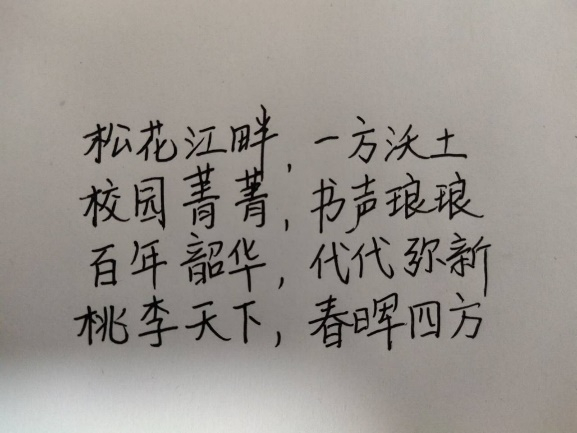 松花江畔,一方沃土
校园菁菁,书声琅琅
百年韶华,代代弥新
桃李天下,春晖四方